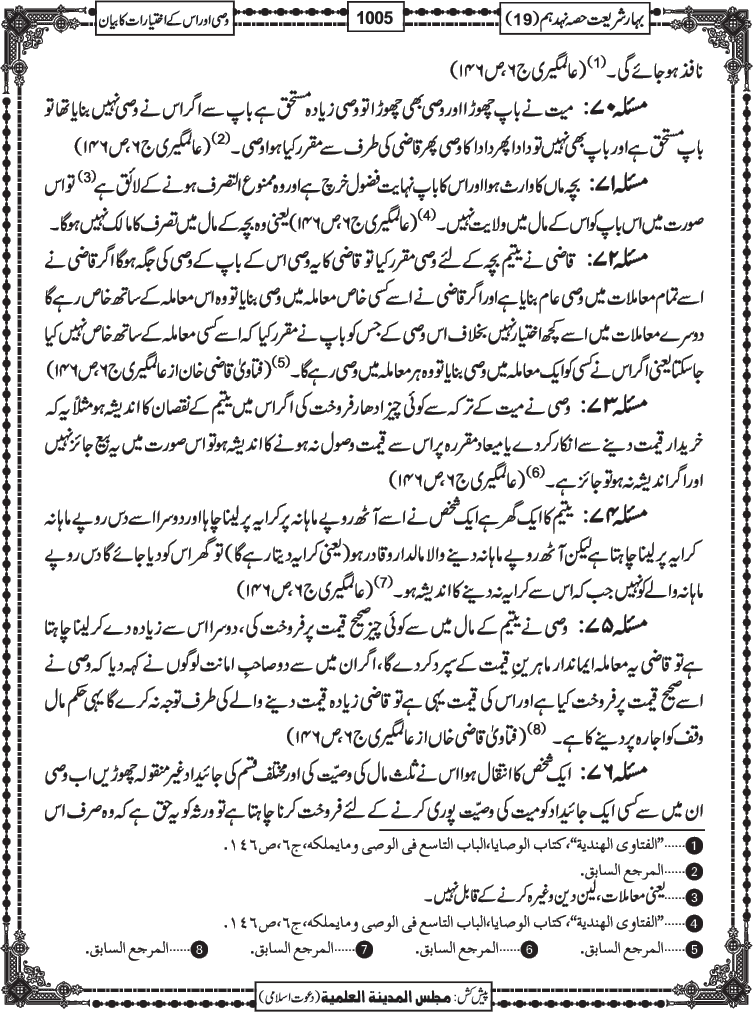 بہار شریعت حصہ نہدہم (19)
1005
وصی اور اس کے اختیارات کا بیان
نافذ ہوجائے گی۔(1) (عالمگیری ج۶، ص۱۴۶)
مسئلہ ۷۰: میت نے باپ چھوڑا اور وصی بھی چھوڑا تو وصی زیادہ مستحق ہے باپ سے اگر اس نے وصی نہیں بنایا تھا تو
باپ مستحق ہے اور باپ بھی نہیں تو دادا پھر دادا کا وصی پھر قاضی کی طرف سے مقرر کیا ہوا وصی۔(2) (عالمگیری ج۶، ص۱۴۶)
مسئلہ ۷۱: بچہ ماں کا وارث ہوا اور اس کا باپ نہایت فضول خرچ ہے اور وہ ممنوع التصرف ہونے کے لائق ہے(3) تو اس
صورت میں اس باپ کو اس کے مال میں ولایت نہیں۔(4) (عالمگیری ج۶، ص۱۴۶) یعنی وہ بچہ کے مال میں تصرف کا مالک نہیں ہوگا۔
مسئلہ ۷۲: قاضی نے یتیم بچہ کے لئے وصی مقرر کیا تو قاضی کا یہ وصی اس کے باپ کے وصی کی جگہ ہوگا اگر قاضی نے
اسے تمام معاملات میں وصی عام بنایا ہے اور اگر قاضی نے اسے کسی خاص معاملہ میں وصی بنایا تو وہ اس معاملہ کے ساتھ خاص رہے گا
دوسرے معاملات میں اسے کچھ اختیار نہیں بخلاف اس وصی کے جس کو باپ نے مقرر کیا کہ اسے کسی معاملہ کے ساتھ خاص نہیں کیا
جاسکتا یعنی اگر اس نے کسی کو ایک معاملہ میں وصی بنایا تو وہ ہر معاملہ میں وصی رہے گا۔(5) (فتاویٰ قاضی خان از عالمگیری ج۶، ص۱۴۶)
مسئلہ ۷۳: وصی نے میت کے ترکہ سے کوئی چیز ادھار فروخت کی اگر اس میں یتیم کے نقصان کا اندیشہ ہو مثلاً یہ کہ
خریدار قیمت دینے سے انکار کردے یا میعاد مقررہ پر اس سے قیمت وصول نہ ہونے کا اندیشہ ہو تو اس صورت میں یہ بیع جائز نہیں
اور اگر اندیشہ نہ ہو تو جائز ہے۔(6) (عالمگیری ج۶، ص۱۴۶)
مسئلہ ۷۴: یتیم کا ایک گھر ہے ایک شخص نے اسے آٹھ روپے ماہانہ پر کرایہ پر لینا چاہا اور دوسرا اسے دس روپے ماہانہ
کرایہ پر لینا چاہتا ہے لیکن آٹھ روپے ماہانہ دینے والا مالدار و قادر ہو (یعنی کرایہ دیتا رہے گا) تو گھر اس کو دیا جائے گا دس روپے
ماہانہ والے کو نہیں جب کہ اس سے کرایہ نہ دینے کا اندیشہ ہو۔(7) (عالمگیری ج۶، ص۱۴۶)
مسئلہ ۷۵: وصی نے یتیم کے مال میں سے کوئی چیز صحیح قیمت پر فروخت کی، دوسرا اس سے زیادہ دے کر لینا چاہتا
ہے تو قاضی یہ معاملہ ایماندار ماہرینِ قیمت کے سپرد کردے گا، اگر ان میں سے دو صاحبِ امانت لوگوں نے کہہ دیا کہ وصی نے
اسے صحیح قیمت پر فروخت کیا ہے اور اس کی قیمت یہی ہے تو قاضی زیادہ قیمت دینے والے کی طرف توجہ نہ کرے گا یہی حکم مال
وقف کو اجارہ پر دینے کا ہے۔ (8) (فتاویٰ قاضی خاں از عالمگیری ج۶، ص۱۴۶)
مسئلہ ۷۶: ایک شخص کا انتقال ہوا اس نے ثلث مال کی وصیّت کی اور مختلف قسم کی جائیداد غیر منقولہ چھوڑیں اب وصی
ان میں سے کسی ایک جائیداد کو میت کی وصیّت پوری کرنے کے لئے فروخت کرنا چاہتا ہے تو ورثہ کو یہ حق ہے کہ وہ صرف اس
1 ......"الفتاوی الهندية"، كتاب الوصايا، الباب التاسع فی الوصی ومایملکه، ج٦، ص١٤٦.
2 ......المرجع السابق.
3 ......یعنی معاملات، لین دین وغیرہ کرنے کے قابل نہیں۔
4 ......"الفتاوی الهندية"، كتاب الوصايا، الباب التاسع فی الوصی ومایملکه، ج٦، ص١٤٦.
5 ......المرجع السابق. 6 ......المرجع السابق. 7 ......المرجع السابق. 8 ......المرجع السابق.
پیش کش: مجلس المدینة العلمیة (دعوت اسلامی)